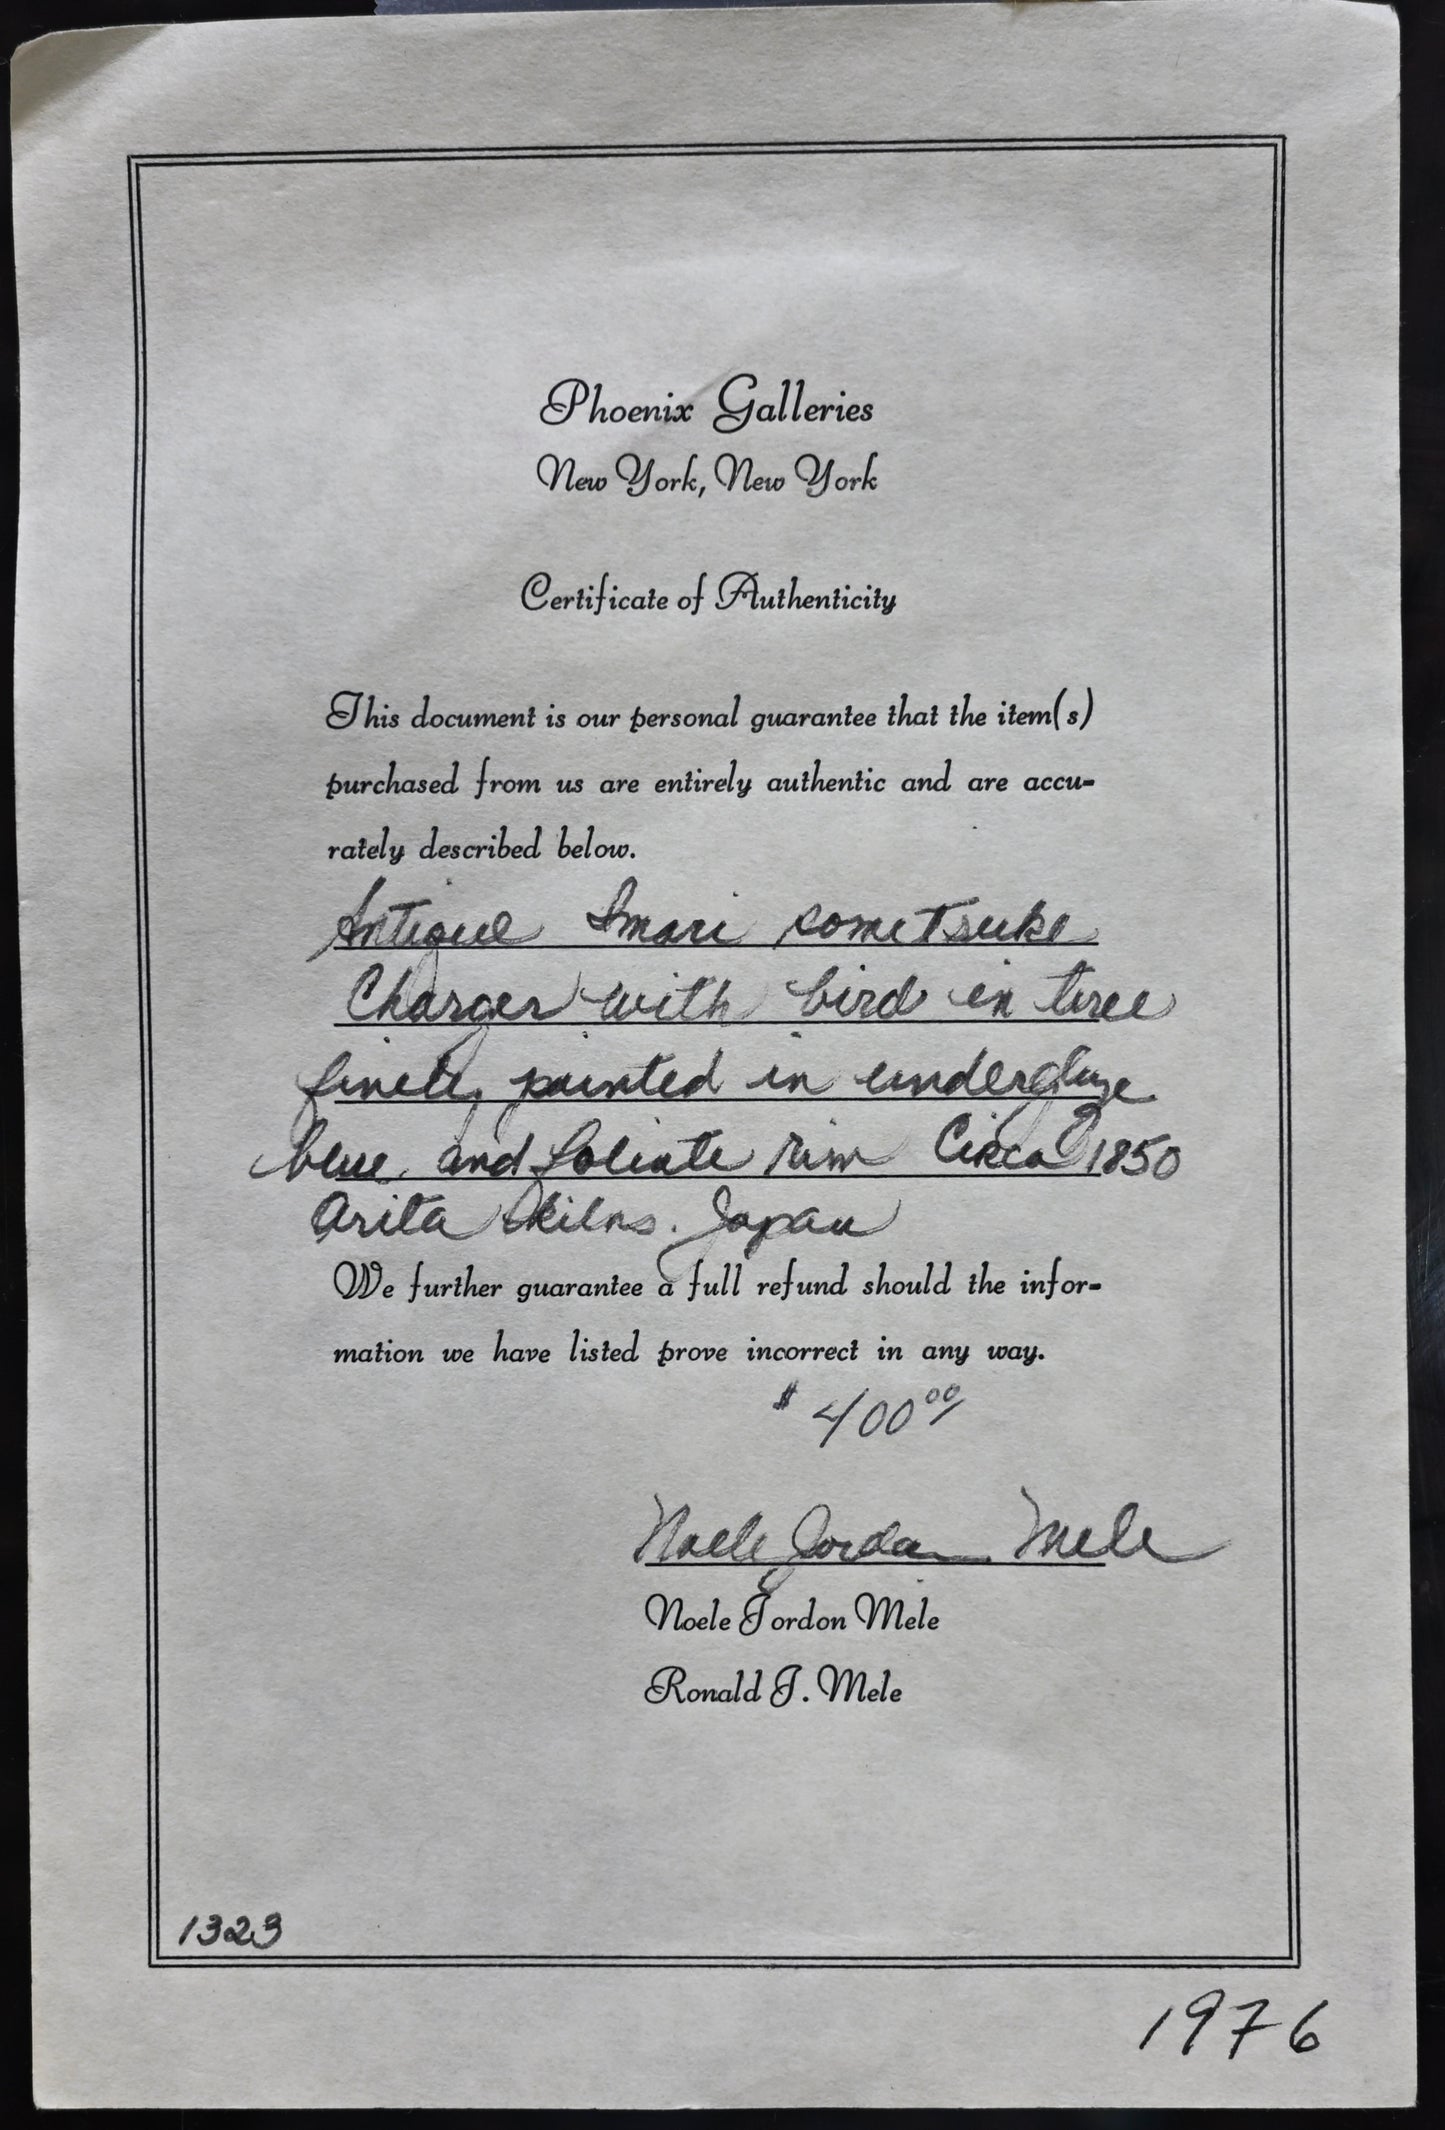 Phoenix Galleries
New York, New York
Certificate of Authenticity
This document is our personal guarantee that the item(s)
purchased from us are entirely authentic and are accu-
rately described below.
Antique Imari sometsuke
Charger with bird in tree
finely painted in underglaze
blue, and foliate rim Circa 1850
Arita Kilns. Japan
We further guarantee a full refund should the infor-
mation we have listed prove incorrect in any way.
$ 400.00
Noele Jordan Mele
Noele Gordon Mele
Ronald J. Mele
1323
1976